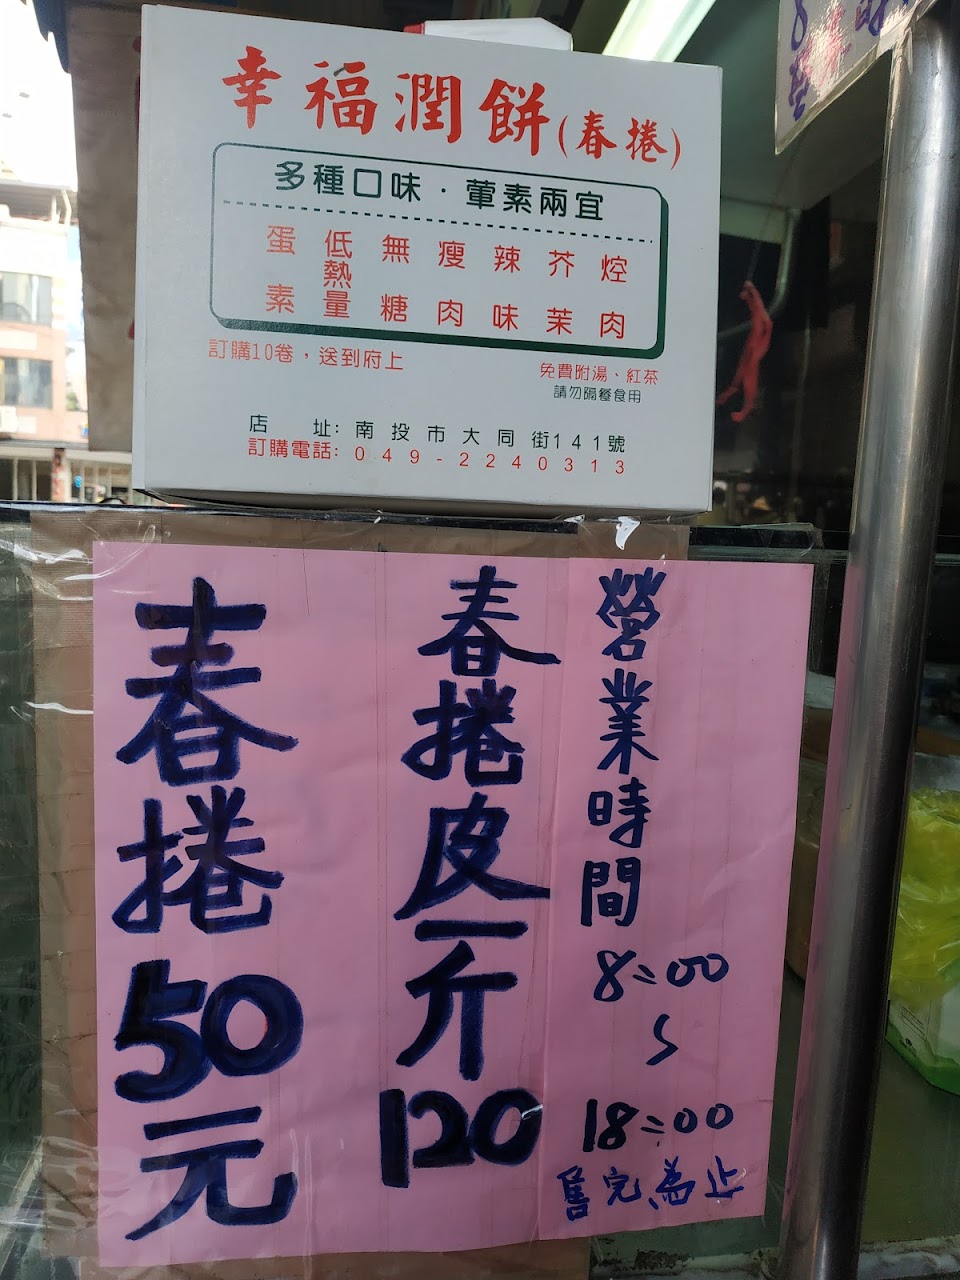 幸福潤餅(春捲)
多種口味．葷素兩宜
焢肉
芥茉
辣味
瘦肉
無糖
低熱量
蛋素
訂購10卷，送到府上
免費附湯、紅茶
請勿隔餐食用
店 址:南投市大同街141號
訂購電話:049-2240313
營業時間
8:00
~
18:00
售完為止
春捲皮一斤120
春捲50元